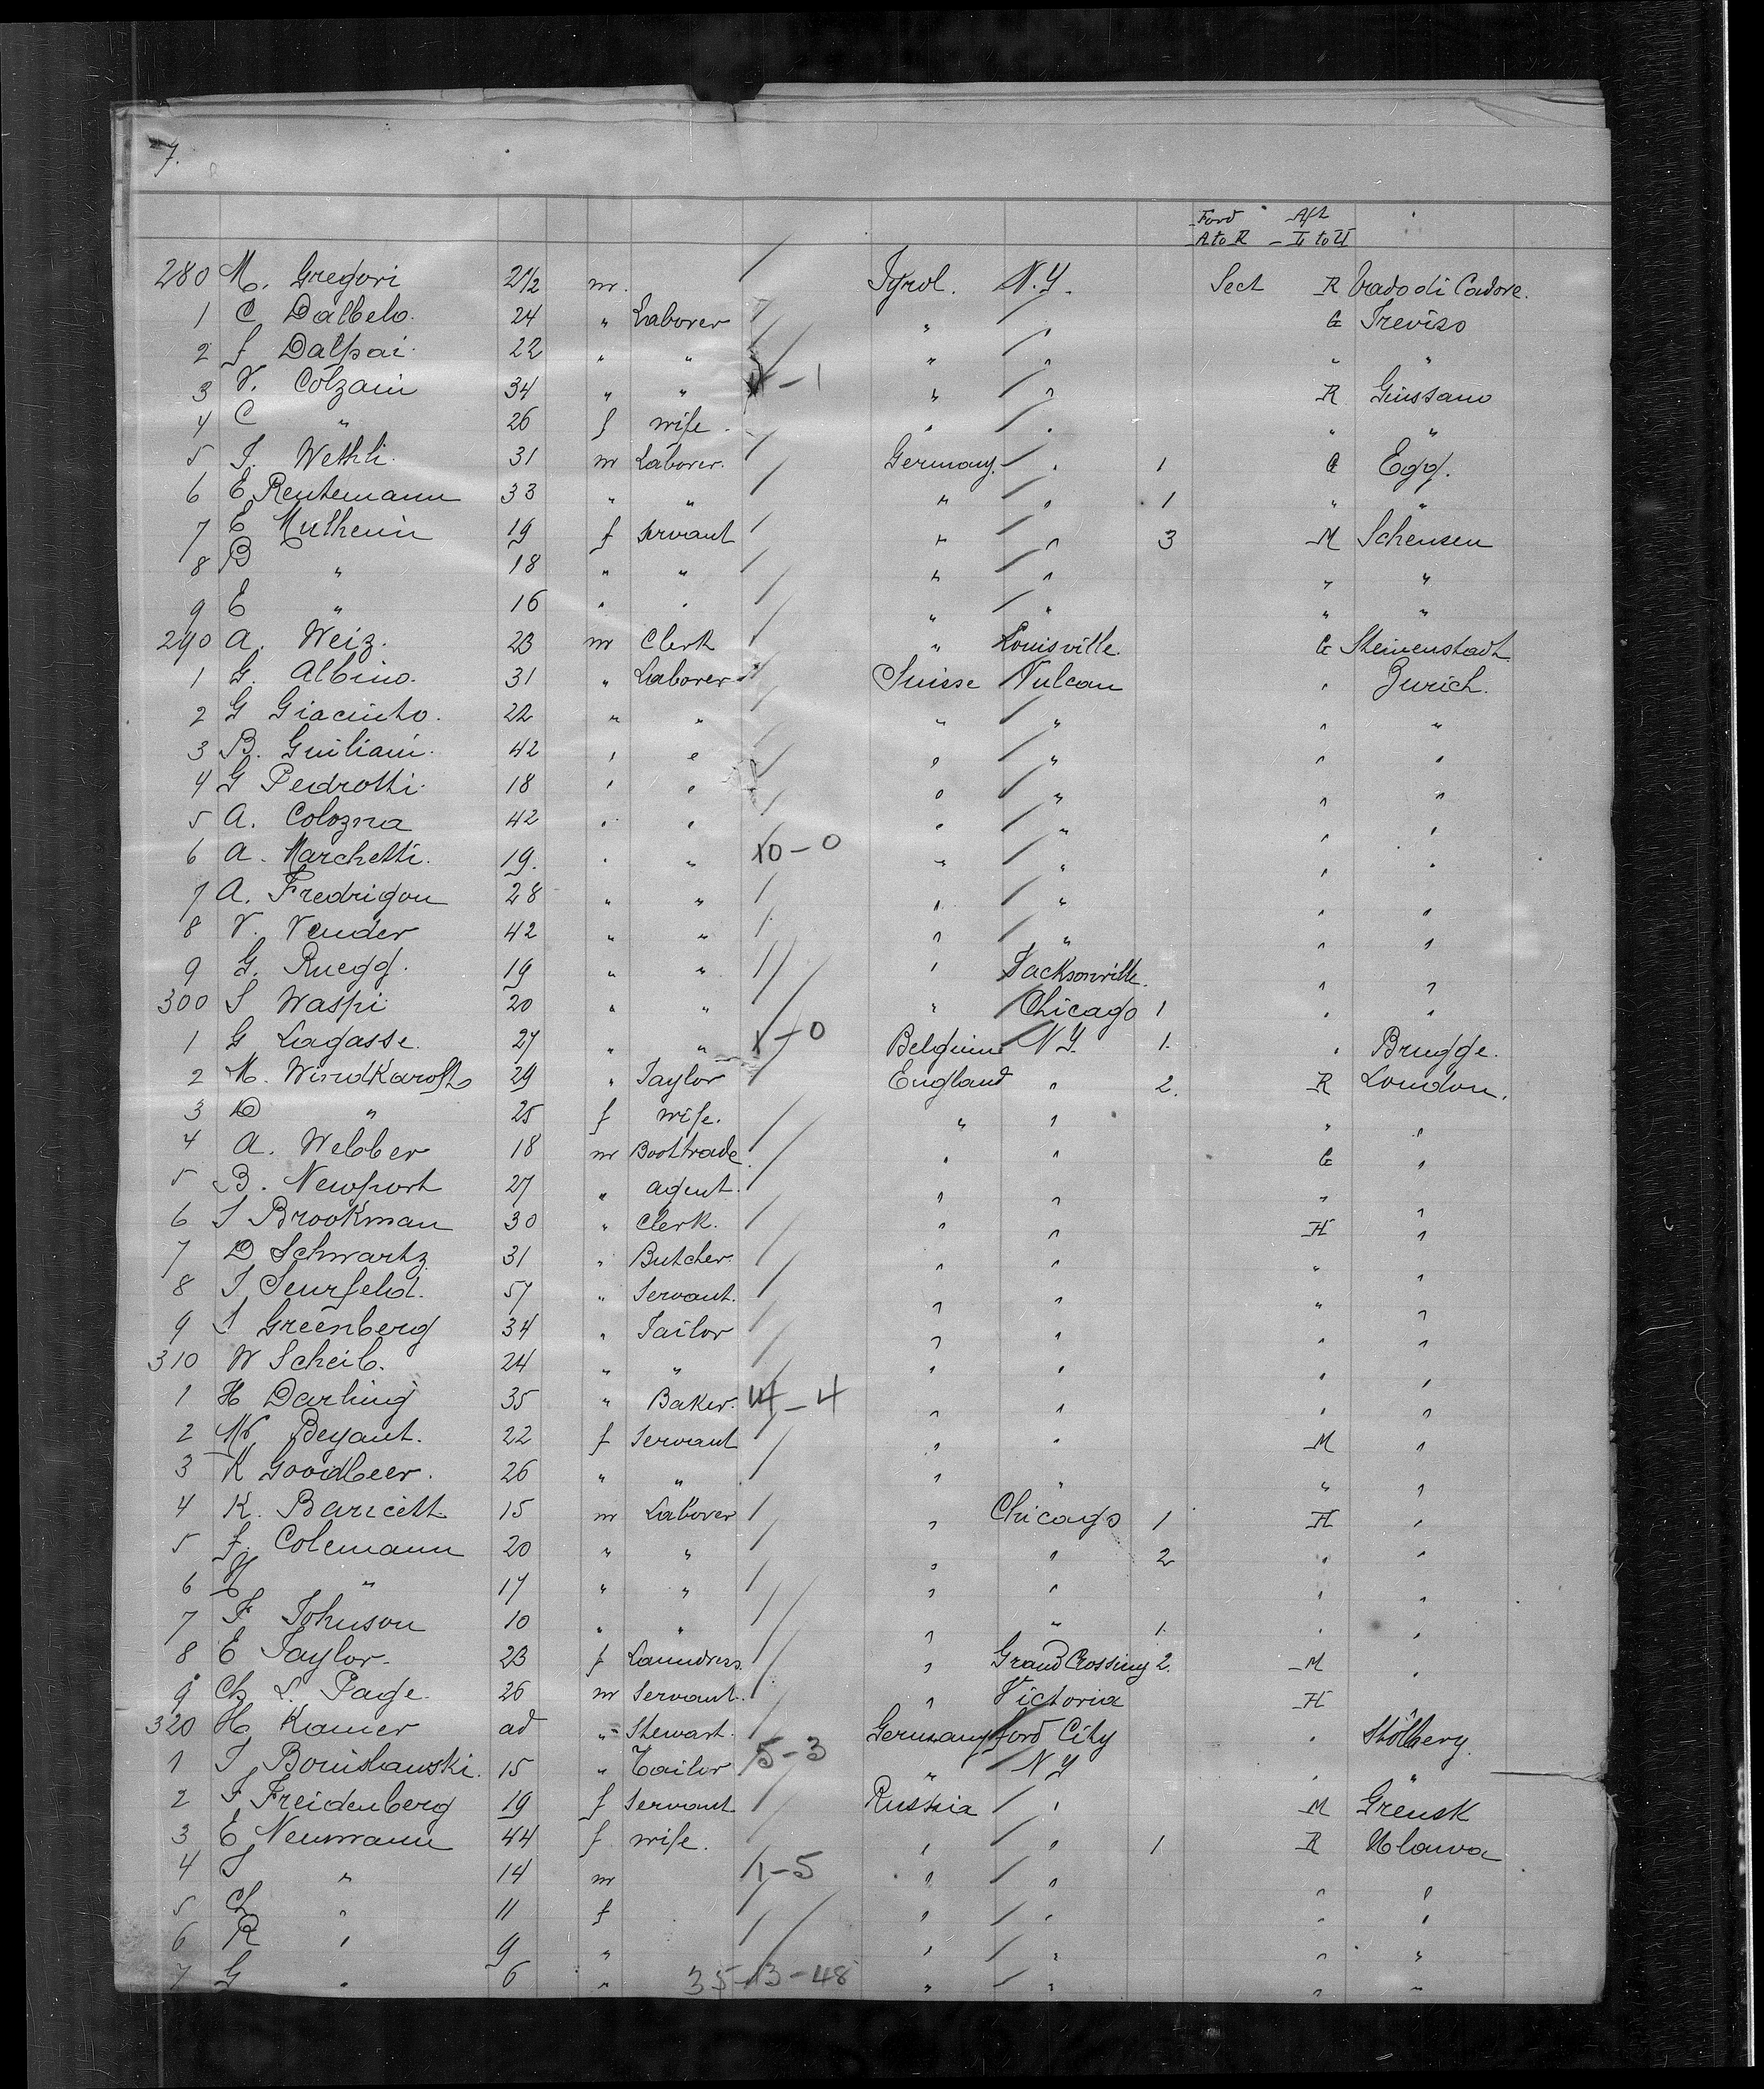 7.
Ford Aft
A to R – I to U
280 M. Gregori 2 1/2 m. Tyrol. N.Y. Sect R Vado di Cadore.
1 C Dalbelo. 24 " Laborer " " G Treviso
2 J Dalpai. 22 " " " " " "
3 V. Colzani 34 " " – 1 " " R Giussano
4 C " 26 f wife. " " " "
5 J. Wethli. 31 m Laborer. Germany. " 1 G Egg.
6 E Rentemann 33 " " " " 1 " "
7 E Muthenin 19 f servant " " 3 M Schensen
8 B " 18 " " " " " "
9 E " 16 " " " " " "
290 A. Weiz. 23 m Clerk " Louisville. G Steinenstadt.
1 G. Albino. 31 " Laborer Suisse Vulcan " Zurich.
2 G Giacinto. 22 " " " " " "
3 B. Guiliani. 42 " " " " " "
4 G Pedrotti. 18 " " " " " "
5 A. Colozna 42 " " " " " "
6 A. Marchetti. 19. " " 10–0 " " " "
7 A. Fredrigon 28 " " " " " "
8 V. Vender 42 " " " " " "
9 G. Ruegg. 19 " " " Jacksonville. " "
300 S Waspi 20 " " " Chicago 1 " "
1 G Lagasse. 27 " " 1–0 Belgium N Y. 1. " Brugge.
2 M. 29 " Taylor England " 2. R London.
3 D " 25 f wife. " " " "
4 A. Webber 18 m Boottrade. " " G "
5 B. Newport 27 " agent. " " " "
6 S Brookman 30 " Clerk. " " H "
7 D Schwartz 31 " Butcher. " " " "
8 S 57 " Servant. " " " "
9 S Greenberg 34 " Tailor " " " "
310 W Scheib. 24 " " " " " "
1 H Darling 35 " Baker. 14–4 " " " "
2 M Beyant. 22 f Servant " " M "
3 K Goodbeer. 26 " " " " " "
4 K. Baricett 15 m Laborer " Chicago 1 H "
5 J. Colemann 20 " " " " 2 " "
6 H " 17 " " " " " "
7 F Johnson 10 " " " " 1. " "
8 E Taylor. 23 f Laundress. " Grand Crossing 2. M "
9 Ch L. Page. 26 m Servant. " Victoria H "
320 H. Kamer ad " Stewart. Germany Ford City " Stolberg.
1 J Bonislawski. 15 " Tailor 5–3 " N Y " "
2 F Freidenberg 19 f Servant Russia " M Grensk
3 E Neumann 44 f wife. " " 1 R Mlawa
4 S " 14 m 1–5 " " " "
5 Ch " 11 f " " " "
6 R " 9 " " " " "
7 G " 6 " 35–13–48 " " " "